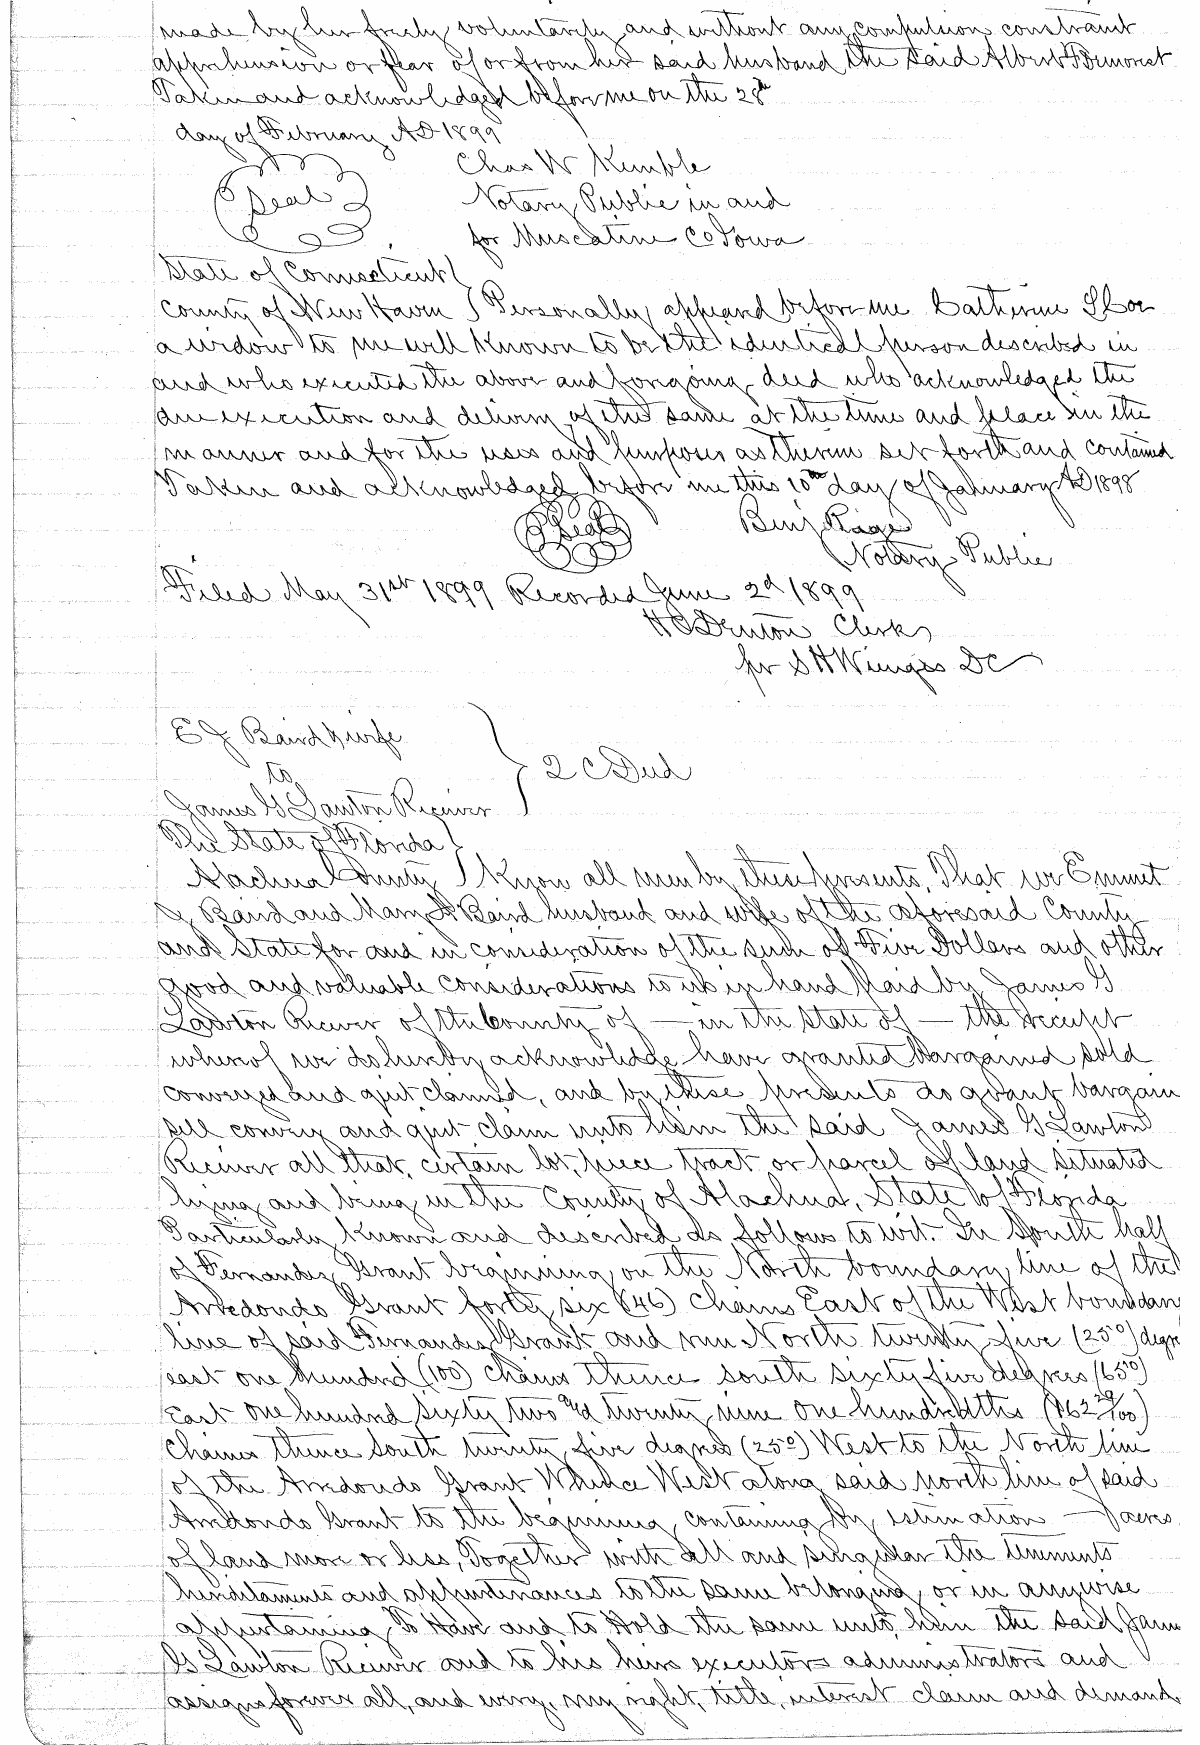 made by her freely voluntarily and without any compulsion constraint
apprehension or fear of or from her said husband the said Albert F Demorest
Taken and acknowledged before me on the 28th
day of February AD 1899
Seal
Chas W Kemble
Notary Public in and
for Muscatine Co Iowa
State of Connecticut
County of New Haven } Personally appeard before me Catherine
a widow to me well known to be the identical person described in
and who executed the above and forgoing deed who acknowledged the
due execution and delivery of the same at the time and place in the
manner and for the uses and purposes as therein set forth and contained
Taken and acknowledged before me this 10th day of January AD 1898
Seal
Benj Page
Notary Public
Filed May 31st 1899 Recorded June 2d 1899
H C Denton Clerk
pr S H Wienges DC
E J Baird & wife
to
James G Lawton Receiver
} 2 C Deed
The State of Florida
Alachua County } Know all men by these presents, That we Emmet
J Baird and Mary Baird husband and wife of the aforesaid County
and State for and in consideration of the sum of Five Dollars and other
good and valuable considerations to us in hand paid by James G
Lawton Reciver of the County of — in the State of — the receipt
whereof we do hereby acknowledge have granted bargained sold
conveyed and quit claimed, and by these presents do grant bargain
sell convey and quit claim unto him the said James G Lawton
Receiver all that certain lot, piece tract or parcel of land situated
lying and being in the County of Alachua, State of Florida
Particularly known and described as follows to wit. In South half
of Fernandez Grant beginning on the North boundary line of the
Arredondo Grant forty six (46) chains East of the West boundary
line of said Fernandez Grant and run North twenty five (25°) degrees
east one hundred (100) chains thence south sixty five degrees (65°)
East one hundred sixty two and twenty nine one hundredths (162 29/100)
Chaines thence South twenty five degrees (25°) West to the North line
of the Arredondo Grant Whence West along said north line of said
Arredondo Grant to the beginning, containing by estimation — acres
of land more or less, Together with all and singular the tenements
hereditaments and appurtenances to the same belonging, or in anywise
appertaining, To Have and to Hold the same unto him the said James
G Lawton Receiver and to his heirs executors administrators and
assigns forever all, and every, my right, title, interest claim and demand